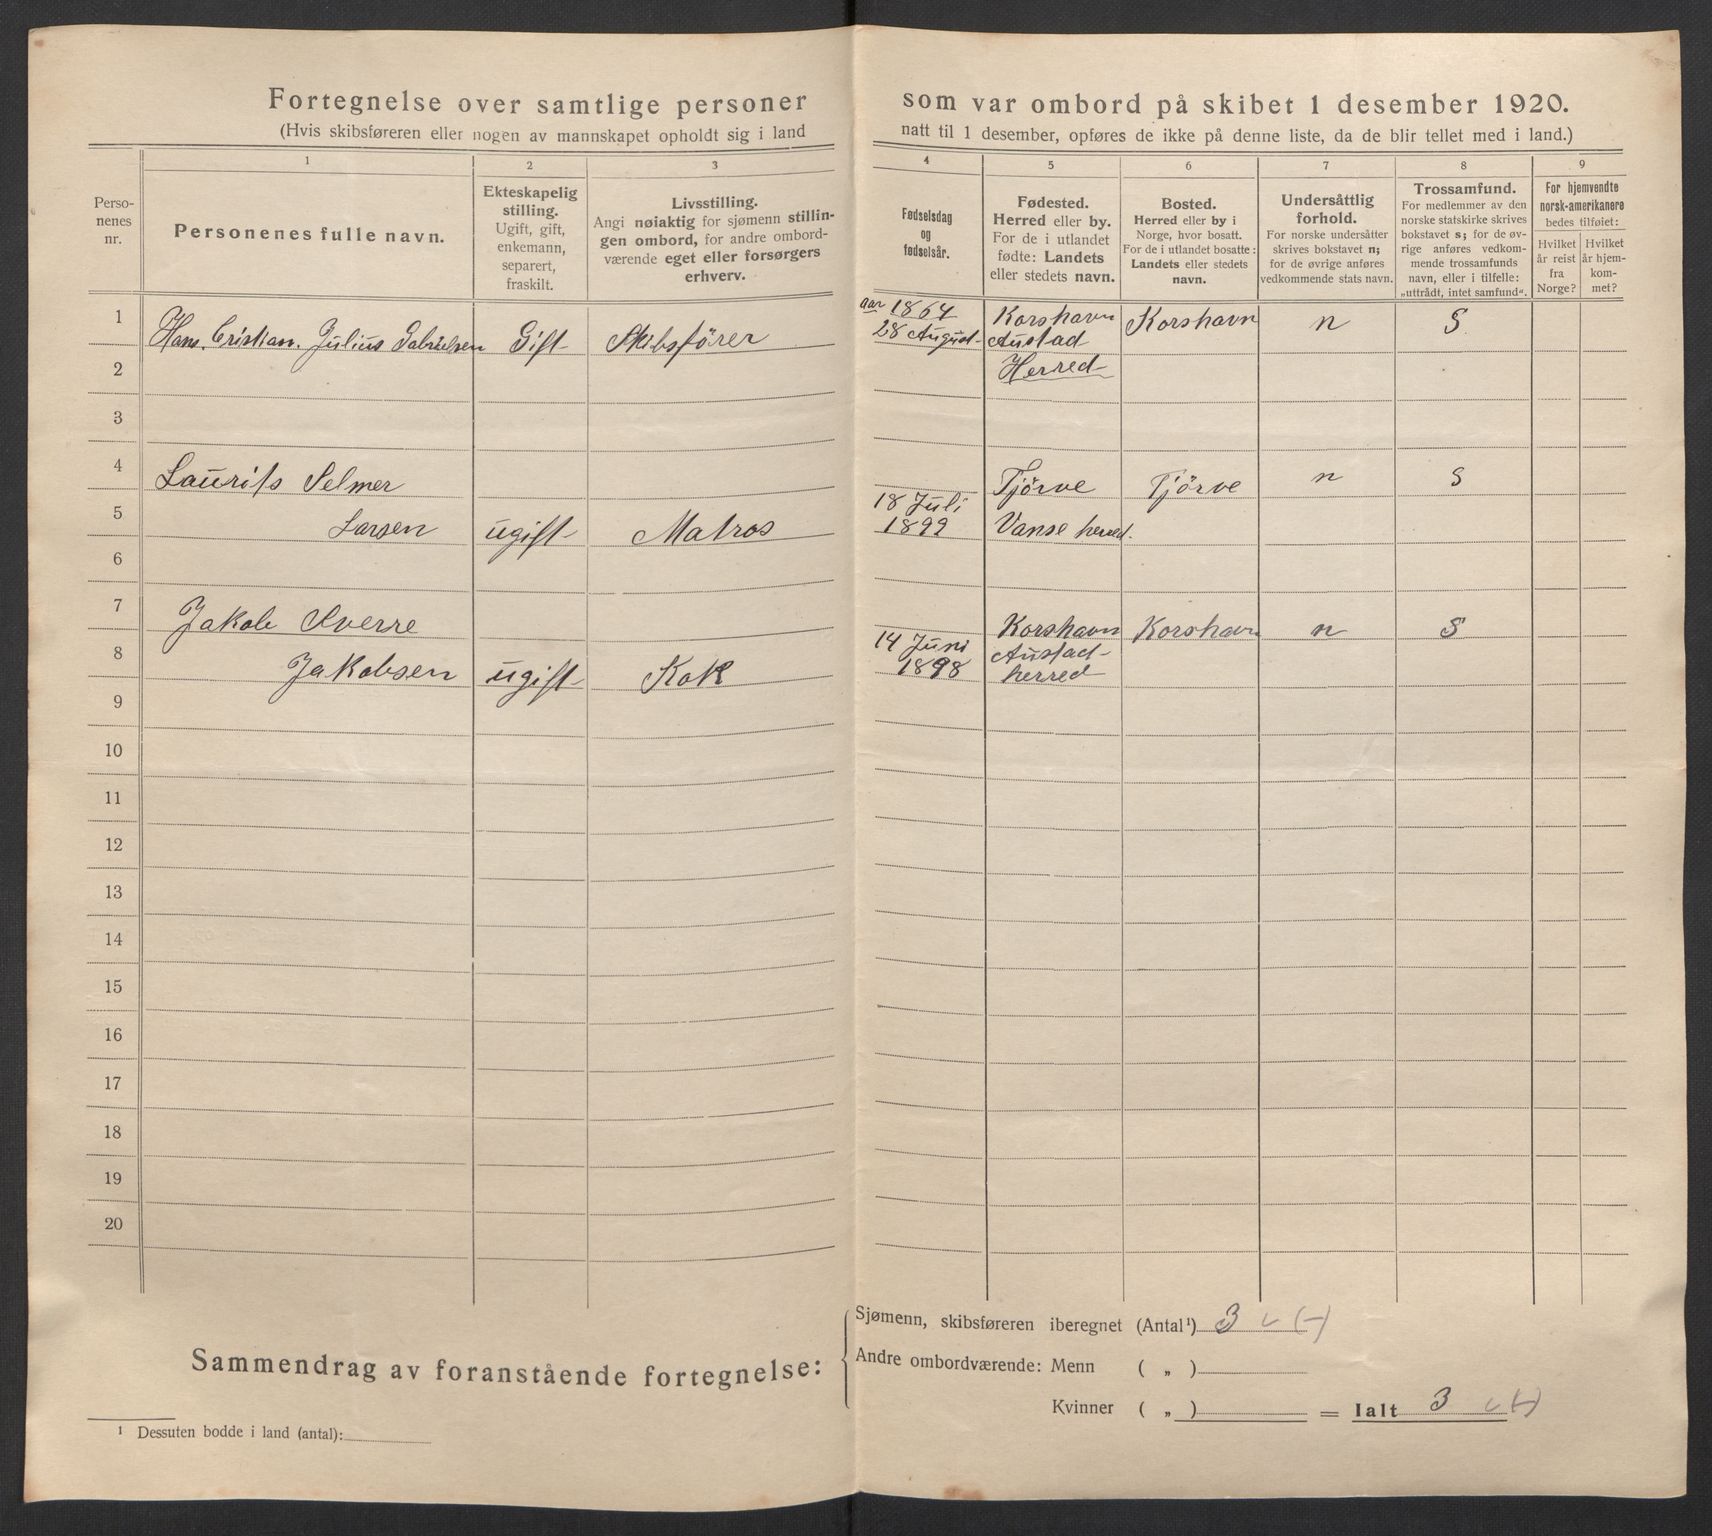 Fortegnelse over samtlige personer som var ombord på skibet 1 desember 1920.
(Hvis skibsføreren eller nogen av mannskapet opholdt sig i land natt til 1 desember, opføres de ikke på denne liste, da de blir tellet med i land.)
Perso-
nenes
nr.
1
Personenes fulle navn.
2
Ekteskapelig
stilling.
Ugift, gift,
enkemann,
separert,
fraskilt.
3
Livsstilling.
Angi nøiaktig for sjømenn stillin-
gen ombord, for andre ombord-
værende eget eller forsørgers
erhverv.
4
Fødselsdag
og
fødselsår.
5
Fødested.
Herred eller by.
For de i utlandet
fødte: Landets
eller stedets navn.
6
Bosted.
Herred eller by i
Norge, hvor bosatt.
For de i utlandet bosatte:
Landets eller stedets
navn.
7
Undersåttlig
forhold.
For norske undersåtter
skrives bokstavet n;
for de øvrige anføres
vedkommende stats navn.
8
Trossamfund.
For medlemmer av den
norske statskirke skrives
bokstavet s; for de øv-
rige anføres vedkom-
mende trossamfunds
navn, eller i tilfelle:
„uttrådt, intet samfund“.
9
For hjemvendte
norsk-amerikanere
bedes tilføiet:
Hvilket
år reist
fra
Norge?
Hvilket
år hjem-
kom-
met?
1 Hans. Cristian. Julius Gabrielsen Gift Skibsförer aar 1864 Korshavn Korshavn n S
28 August Austad
2 Herred
3
4 Laurits Selmer Tjörve Tjörve n S
18 Juli
5 Larsen ugift Matros 1899 Vanse herred.
6
7 Jakob Sverre Korshavn Korshavn n S
14 Juni Austad
8 Jakobsen ugift Kok 1898 herred
9
10
11
12
13
14
15
16
17
18
19
20
Sammendrag av foranstående fortegnelse:
Sjømenn, skibsføreren iberegnet (Antal¹) 3 (-)
Andre ombordværende: Menn ( „ )
Kvinner ( „ ) = Ialt 3 (-)
¹ Dessuten bodde i land (antal):